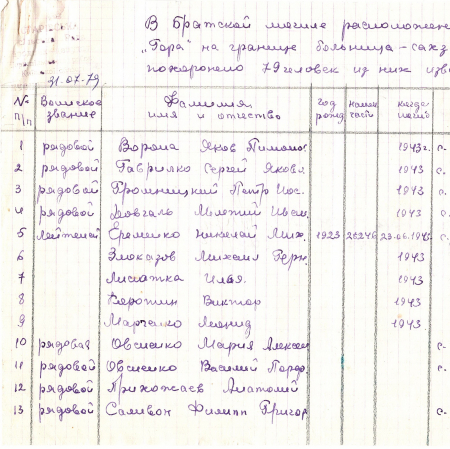 В Братской могиле расположен
"Гора" на границе больница - сахз
похоронено 79 человек из них изв
31.07.79
№ п/п Воинское звание Фамилия имя и отчество год рожд. номер части когда погиб
1 рядовой Ворона Яков Пимоно. 1943г. с.
2 рядовой Гаврилко Сергей Яковл. 1943 с.
3 рядовой Громницкий Петр Иос. 1943 с.
4 рядовой Довгаль 1943 с.
5 лейтенант Еременко Николай Мих. 1923 с-
6 Злоказов Михаил 1943
7 Илья. 1943
8 Коротин Виктор
9 Марченко Леонид 1943
10 рядовая Овсиенко Мария Алексеи с-
11 рядовой Овсиенко Василий с-
12 рядовой Прихожаев Анатолий
13 рядовой Саливон Филипп Григор с-